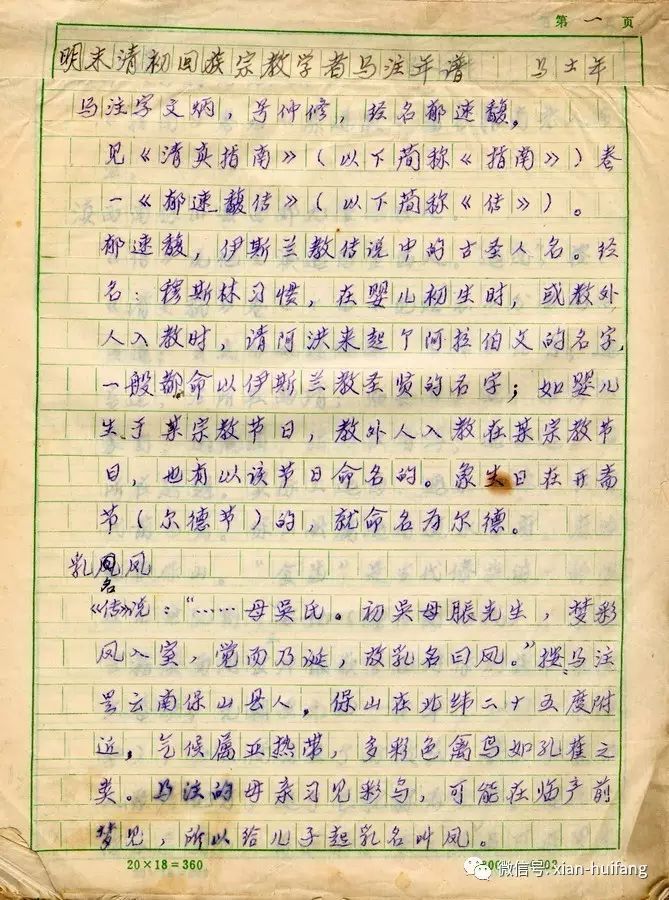 第 一 页
明末清初回族宗教学者马注年谱 马士年
马注字文炳，号仲修，经名郁速馥。
见《清真指南》（以下简称《指南》）卷
一《郁速馥传》（以下简称《传》）。
郁速馥，伊斯兰教传说中的古圣人名。经
名：穆斯林习惯，在婴儿初生时，或教外
人入教时，请阿洪来起个阿拉伯文的名字，
一般都命以伊斯兰教圣贤的名字；如婴儿
生于某宗教节日，教外人入教在某宗教节
日，也有以该节日命名的。象生日在开斋
节（尔德节）的，就命名为尔德。
乳名曰凤
《传》说："……母吴氏。初吴母脤先生，梦彩
凤入室，觉而乃诞，故乳名曰凤。"按马注
是云南保山县人，保山在北纬二十五度附
近，气候属亚热带，多彩色禽鸟如孔雀之
类。马注的母亲习见彩鸟，可能在临产前
梦见，所以给儿子起乳名叫凤。
20×18=360
微信号: xian-huifang